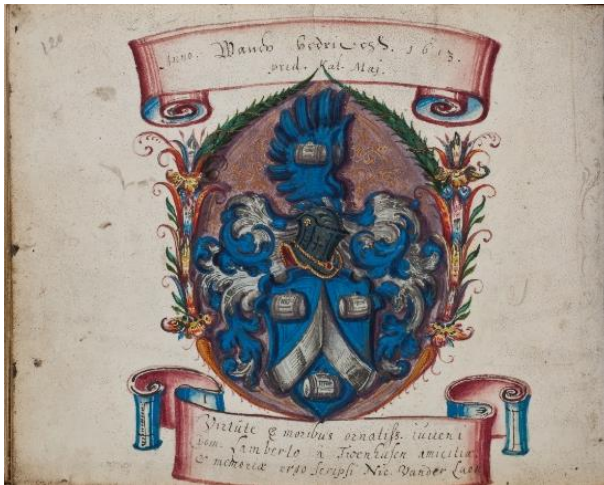 120
Anno. Wandv bedriegt. 1613.
prid. Kal. Maj.
Virtute & moribus ornatiss. iuveni
Dom. Lamberto a Twenhusen amicitiæ
& memoriæ ergo scripsi Nic. Vander Laen